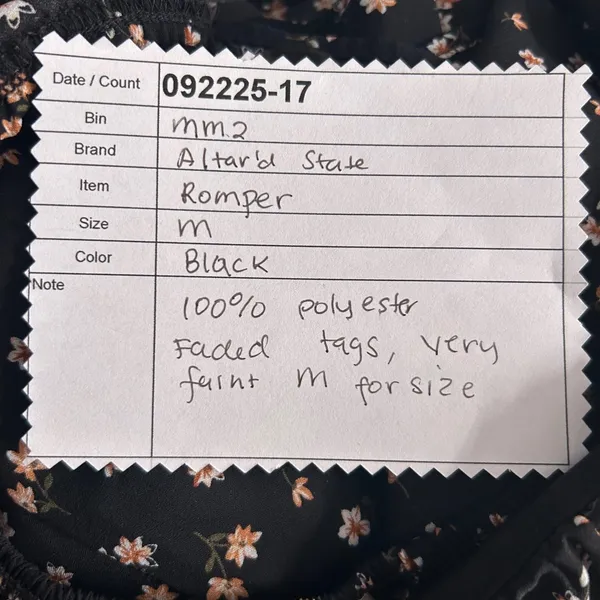 Date / Count 092225-17
Bin mm2
Brand Altar'd State
Item Romper
Size m
Color Black
Note 100% polyester
Faded tags, very
faint m for size